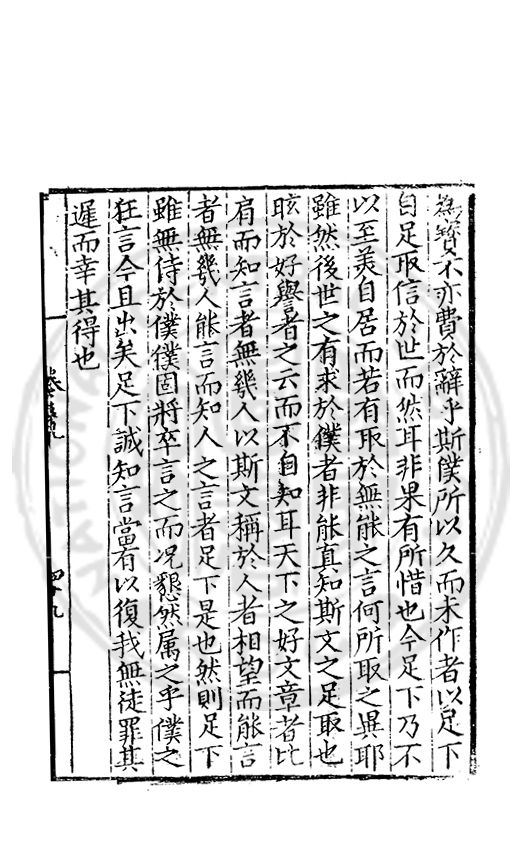 為寳不亦費於辭乎斯僕所以久而未作者以足下
自足取信於世而然耳非果有所惜也今足下乃不
以至美自居而若有取於無能之言何所取之異耶
雖然後世之有求於僕者非能真知斯文之足取也
眩於好譽者之云而不自知耳天下之好文章者比
肩而知言者無幾人以斯文稱於人者相望而能言
者無幾人能言而知人之言者足下是也然則足下
雖無侍於僕僕固將卒言之而况懇然属之乎僕之
狂言今且出矣足下誠知言當有以復我無徒罪其
遲而幸其得也
四十九